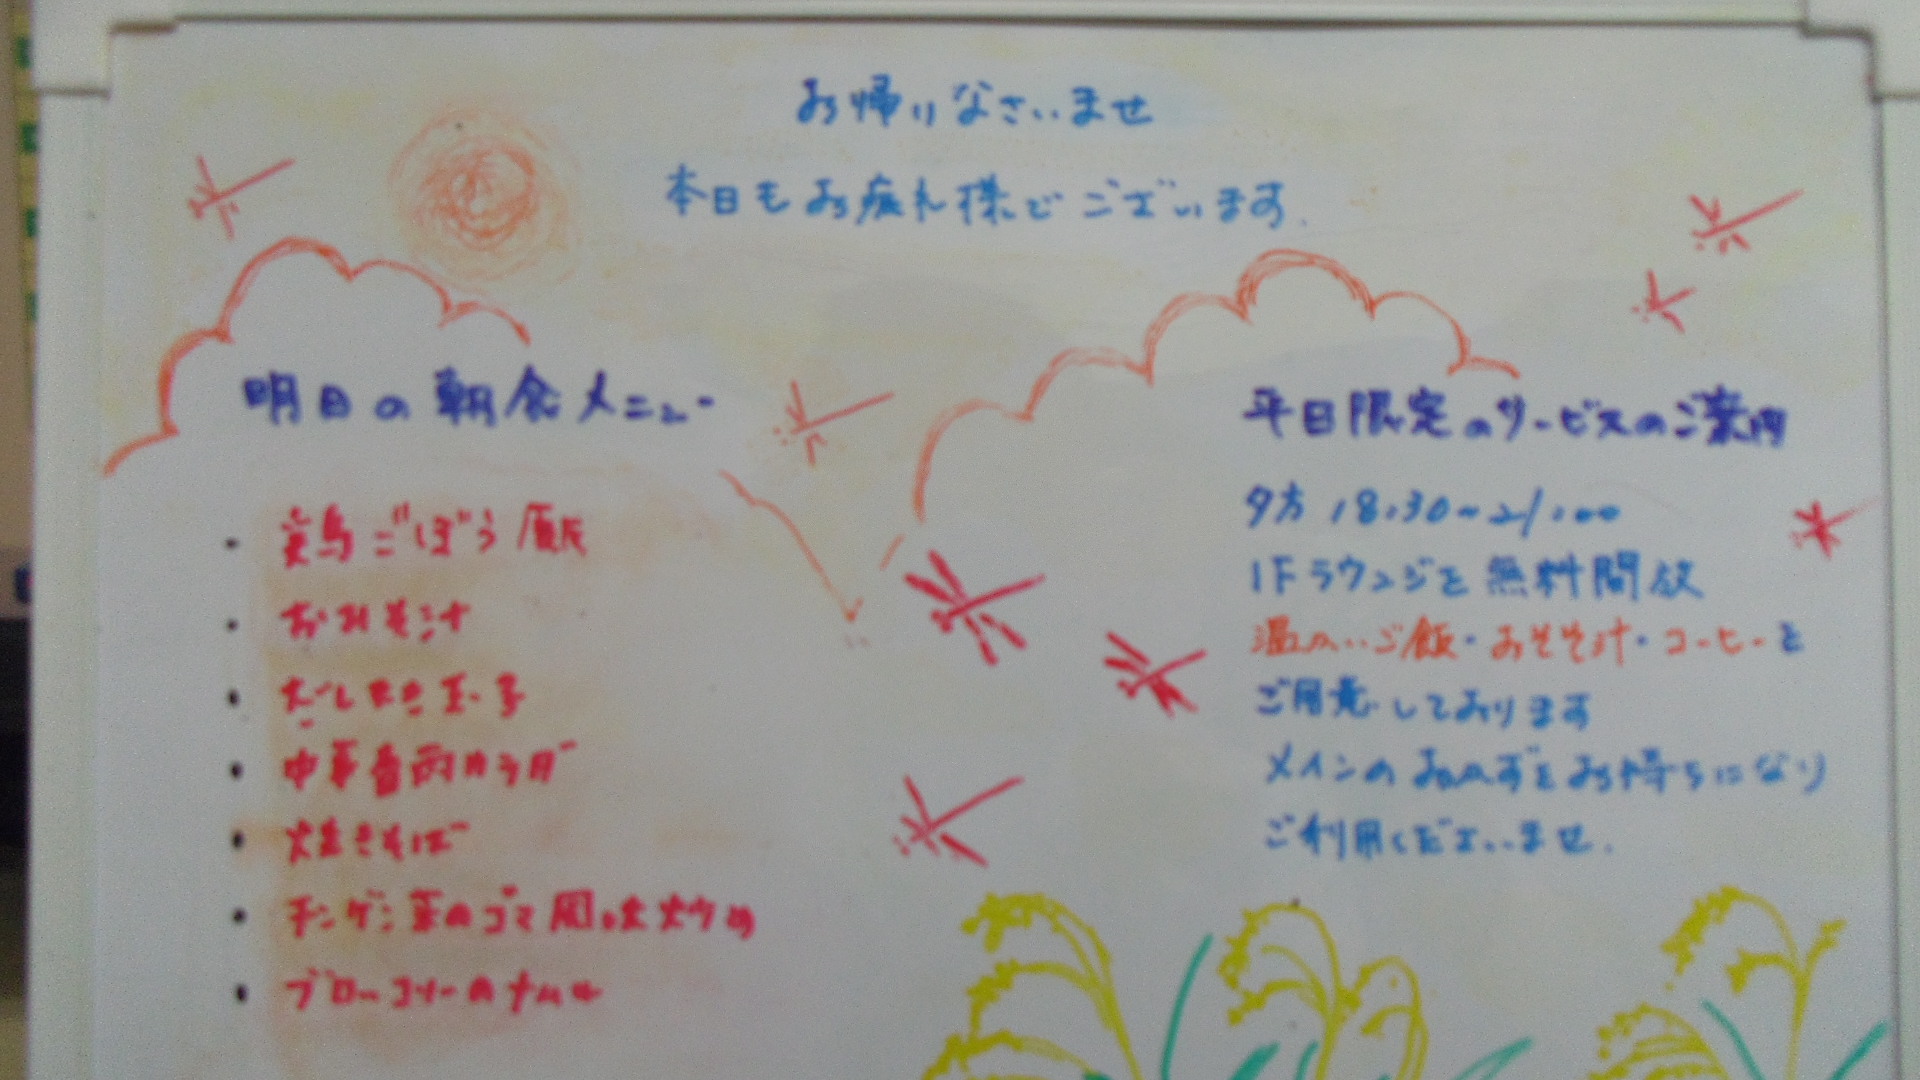 お帰りなさいませ
本日もお疲れ様でございます.
明日の朝食メニュー
・ 鶏ごぼう飯
・ おみそ汁
・ だしまき玉子
・ 中華春雨サラダ
・ 焼きそば
・ チンゲン菜のゴマ炒め
・ ブロッコリーのナムル
平日限定のサービスのご案内
夕方 18:30~21:00
1Fラウンジを無料開放
温かいご飯・おみそ汁・コーヒーを
ご用意しております
メインのおかずをお持ちになり
ご利用くださいませ.